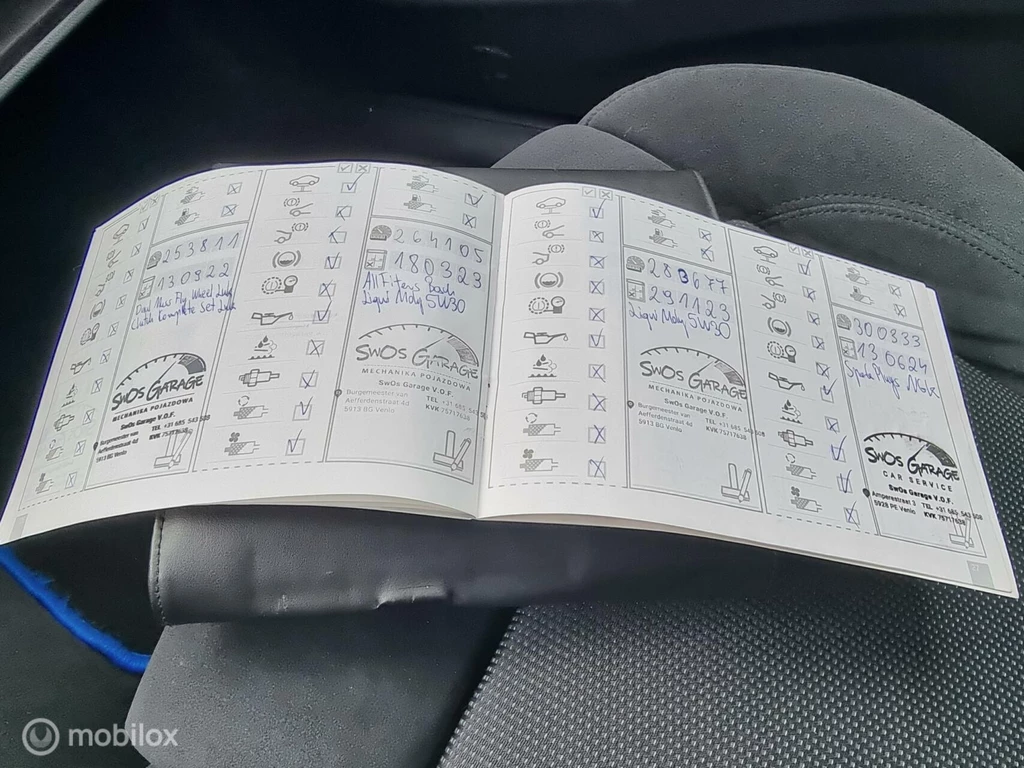 253811
130922
Clutch Complete Set Luk
SWOS GARAGE
MECHANIKA POJAZDOWA
SwOs Garage V.O.F.
Burgemeester van TEL +31 685 543 508
Aefferdenstraat 4d KVK 75717638
5913 BG Venlo
264105
180323
All Filters Bosch
Liqui Moly 5W30
SWOS GARAGE
MECHANIKA POJAZDOWA
SwOs Garage V.O.F.
Burgemeester van TEL +31 685 543 508
Aefferdenstraat 4d KVK 75717638
5913 BG Venlo
283677
291123
Liqui Moly 5W30
SWOS GARAGE
MECHANIKA POJAZDOWA
SwOs Garage V.O.F.
Burgemeester van TEL +31 685 543 508
Aefferdenstraat 4d KVK 75717638
5913 BG Venlo
300833
130624
SWOS GARAGE
CAR SERVICE
SwOs Garage V.O.F.
Amperestraat TEL +31 685 543 508
5928 PE Venlo KVK 75717638
mobilox